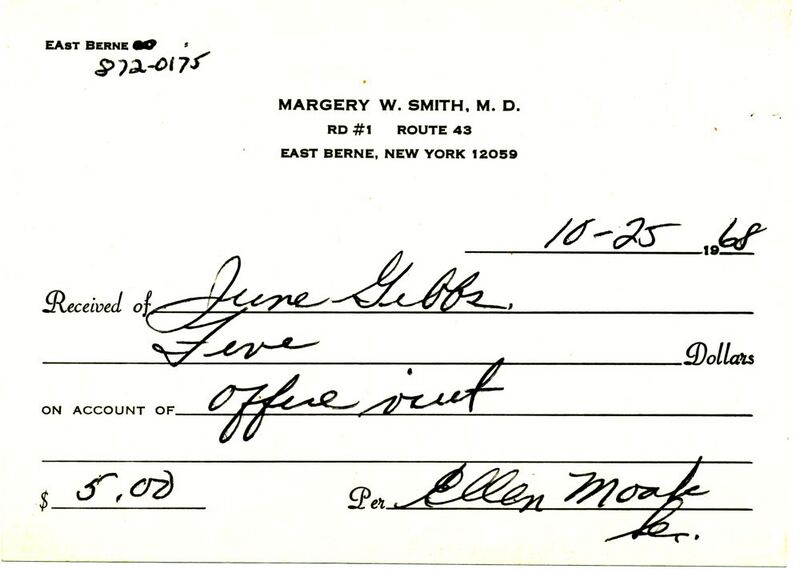 EAST BERNE
872-0175
MARGERY W. SMITH, M. D.
RD #1 ROUTE 43
EAST BERNE, NEW YORK 12059
10-25 1968
Received of June Gibbs.
Five Dollars
ON ACCOUNT OF office visit
$ 5.00 Per Ellen Moak